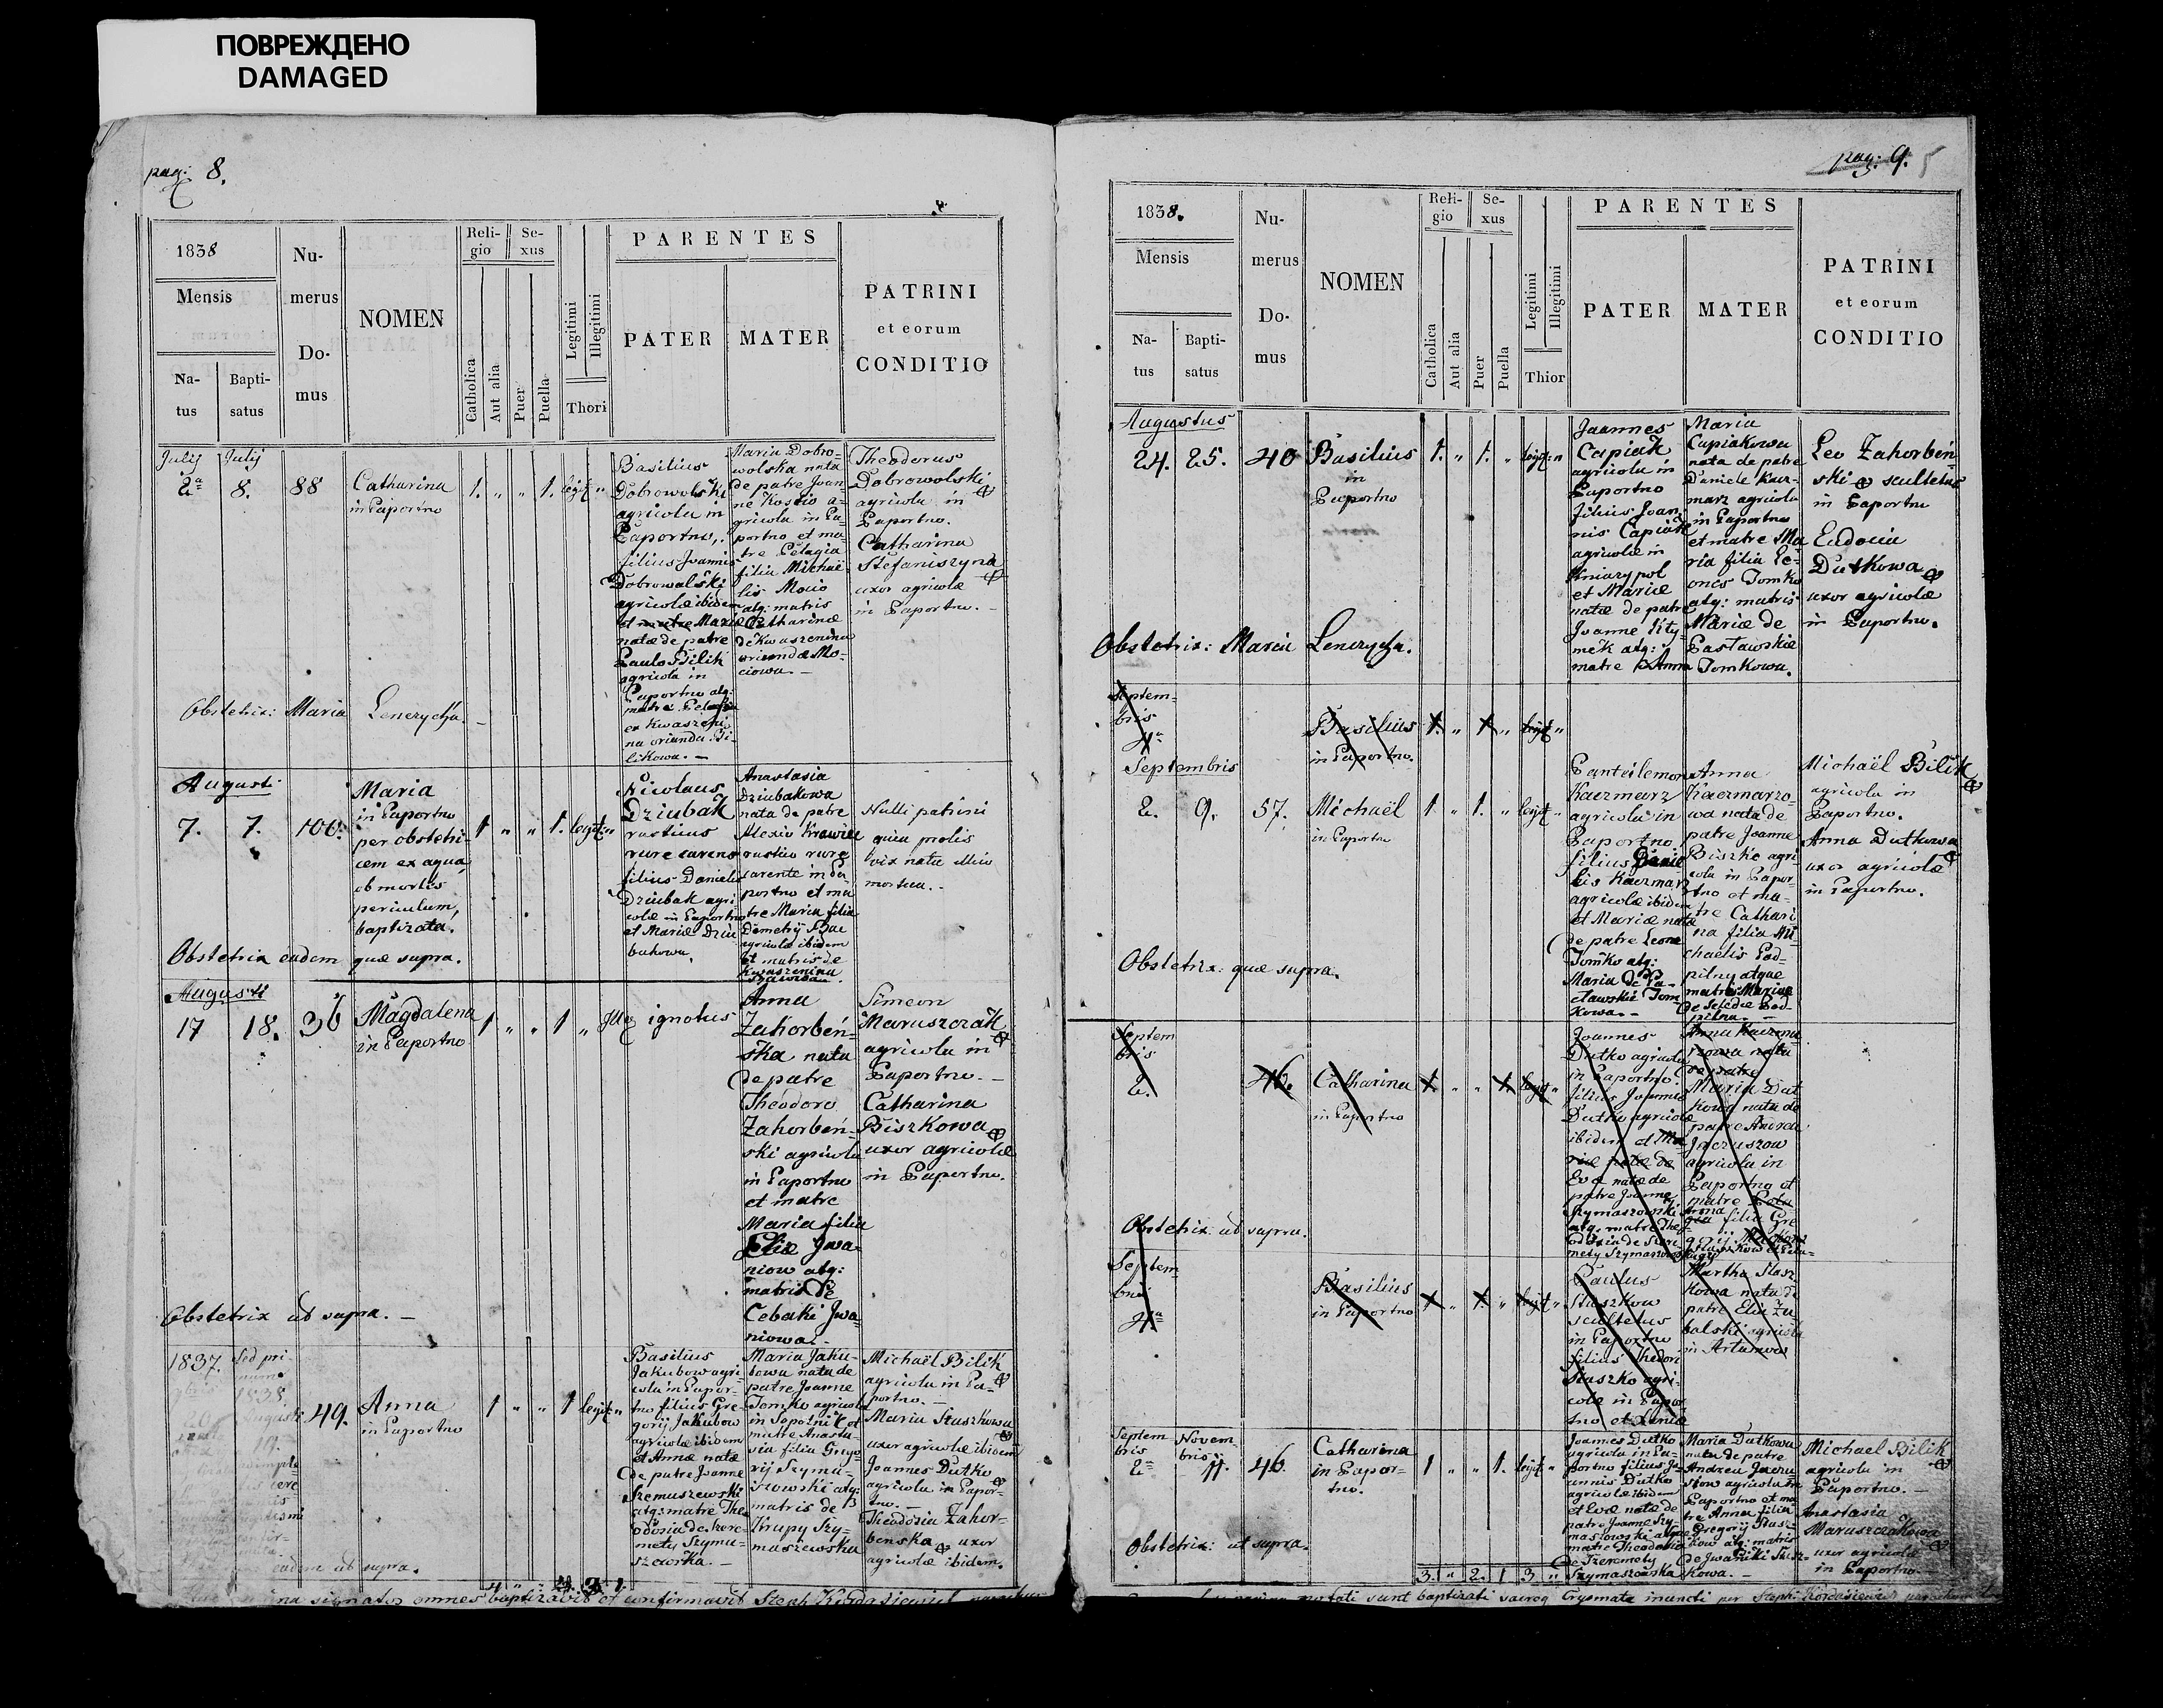 ПОВРЕЖДЕНО
DAMAGED
pag: 8.
1838
Mensis
Na-
tus
Bapti-
satus
Nu-
merus
Do-
mus
NOMEN
Reli-
gio
Catholica
Aut alia
Se-
xus
Puer
Puella
Legitimi
Illegitimi
Thori
PARENTES
PATER
MATER
PATRINI
et eorum
CONDITIO
Julij Julij
2a 8. 88
Catharina
in Paportno
1. " " 1. legit "
Basilius
Dobrowolski
agricola in
Paportno,
filius Joannis
Dobrowolski
agricolæ ibidem
et matre Mariæ
natæ de patre
Paulo Bilik
agricola in
Paportno atq:
matre Pelagia
ex Kwaszeni-
na orianda Bi-
likowa. –
Maria Dobro-
wolska nata
de patre Joan-
ne Kostio a-
gricola in Pa-
portno et ma-
tre Pelagia
filia Michaë-
lis Mocio
atq: matris
Catharinæ
de Kwaszenina
oriundæ Mo-
ciowa. –
Theodorus
Dobrowolski
agricola in
Paportno.
Catharina
Stefaniszyna
uxor agricolæ
in Paportno. –
Obstetrix: Maria Lenczycha. –
Augusti
7. 7. 100.
Maria
in Paportno
per obstetri-
cem ex aqua
ob mortis
periculum,
baptizata.
1 " " 1. legit: "
Nicolaus
Dziubak
rusticus
rure carens
filius Danielis
Dziubak agri-
colæ in Paportno
et Mariæ Dziu
bakowa.
Anastasia
Dziubakowa
nata de patre
Alexio Krawiec
rustico rure
carente in Pa-
portno et ma
tre Maria filia
Demetrij
agricolæ ibidem
et matris de
Kwaszenina
Nulli patrini
quia prolis
vix nata illico
mortua. –
Obstetrix eadem quæ supra.
Augusti
17 18. 36
Magdalena
in Paportno
1 " " 1 "
ignotus
Anna
Zahorbeń-
ska nata
de patre
Theodoro
Zahorbeń-
ski agricola
in Paportno
et matre
Maria filia
Eliæ Jwa-
niow atq:
matris de
Cebaki Jwa-
niowa. –
Simeon
Maruszczak
agricola in
Paportno. –
Catharina
Biszkowa
uxor agricolæ
in Paportno.
Obstetrix ut supra. –
1837. Sed pri-
1838.
Augusti
49.
Anna
in Paportno
1 " " 1 legit "
Basilius
Jakubow agri-
cola in Papor-
tno filius Gre-
gorij Jakubow
agricolæ ibidem
et Annæ natæ
de patre Joanne
Szemuszewski
atq: matre The
odosia de Szere-
mety Szymu-
szewska. –
Maria Jaku-
bowa nata de
patre Joanne
Tomko agricola
in Sopotnik et
matre Anasta-
sia filia Grego
rij Szymu-
szowski atq:
matris de
Krupy Szy-
muszewska
Michaël Bilik
agricola in Pa-
portno. –
Maria Staszkowa
uxor agricolæ ibidem
Joannes Dutko
agricola in Papor-
tno. –
Theodosia Zahor-
benska uxor
agricolæ ibidem.
eadem ut supra.
signatos omnes baptizavit et confirmavit Steph: Kordasiewicz
pag: 9. 5
1838.
Mensis
Na-
tus
Bapti-
satus
Nu-
merus
Do-
mus
NOMEN
Reli-
gio
Catholica
Aut alia
Se-
xus
Puer
Puella
Legitimi
Illegitimi
Thior
PARENTES
PATER
MATER
PATRINI
et eorum
CONDITIO
Augustus
24. 25. 40
Basilius
in
Paportno
1. " 1. " legit: "
Joannes
Capiak
agricola in
Paportno
filius Joan-
nis Capiak
agricolæ in
Kniazypol
et Mariæ
natæ de patre
Joanne Kty-
mek atq:
matre Anna
Maria
Capiakowa
nata de patre
Daniele Kacz-
marz agricola
in Paportno
et matre Ma
ria filia Le-
ones Tomko
atq: matris
Mariæ de
Pastawskie
Tomkowa.
Leo Zahorbeń-
ski scultetus
in Paportno
Eudocia
Dutkowa
uxor agricolæ
in Paportno.
Obstetrix: Maria Lenczycha.
Septem-
bris
4a
Basilius
in Paportno.
1. " 1 " legit "
Septembris
2. 9. 57.
Michaël
in Paportno
1 " 1. " legit "
Pantilemon
Kaczmarz
agricola in
Paportno
filius Danie
lis Kaczmarz
agricolæ ibidem
et Mariæ natæ
de patre Leone
Tomko atq:
Maria de Pa-
stawskie Tom
kowa. –
Anna
Kaczmarzo-
wa nata de
patre Joanne
Biszko agri
cola in Papor-
tno et ma-
tre Cathari
na filia Mi-
chaelis Pod-
pilny atque
matris Mariæ
de Seledie Pod-
pilna. –
Michaël Bilik
agricola in
Paportno.
Anna Dutkowa
uxor agricolæ
in Paportno.
Obstetrix: quæ supra.
Septem
bris
2. 46.
Catharina
in Paportno
1. " " 1. legit "
Joannes
Dutko agricola
in Paportno.
filius Joannis
Dutko agricolæ
ibidem et Ma-
riæ natæ de
Eva natæ de
patre Joanne
Szymaszowski
atq: matre The
odosia de Szere
mety
Anna Kaczma
rzowa nata
de patre
Maria Dut
kowa nata de
patre Andrea
Jaczuszow
agricola in
Paportno et
matre
Anna
filia Gre
gorij
Obstetrix: ut supra.
Septem
bris
4a
Basilius
in Paportno
1 " 1. " legit "
Paulus
Staszkow
scultetus
in Paportno
filius Thedori
Staszko agri-
colæ in Papor
tno et Xeniæ
Martha Stasz
kowa nata de
patre Elia Zu
balski agricola
in Artumow
Septem
bris
2a
Novem-
bris
11. 46.
Catharina
in Papor-
tno.
1 " " 1. legit "
Joannes Dutko
agricola in Pa-
portno filius Jo-
annis Dutko
agricolæ ibidem
et Evæ natæ de
patre Joanne Szy-
maszowski atque
matre Theodosia
de Szeremety
Szymaszowska
Maria Dutkowa
nata de patre
Andrea Jaczu
szow agricola in
Paportno et ma
tre Anna filia
Gregorij Stasz-
kow atq: matris
de Jwaniki Stasz-
kowa. –
Michael Bilik
agricola in
Paportno. –
Anastasia
Maruszczakowa
uxor agricolæ
in Paportno. –
Obstetrix: ut supra.
3. " 2. 1 3 "
notati sunt baptizati sacroq Crysmate inuncti per Steph: Kordasiewicz